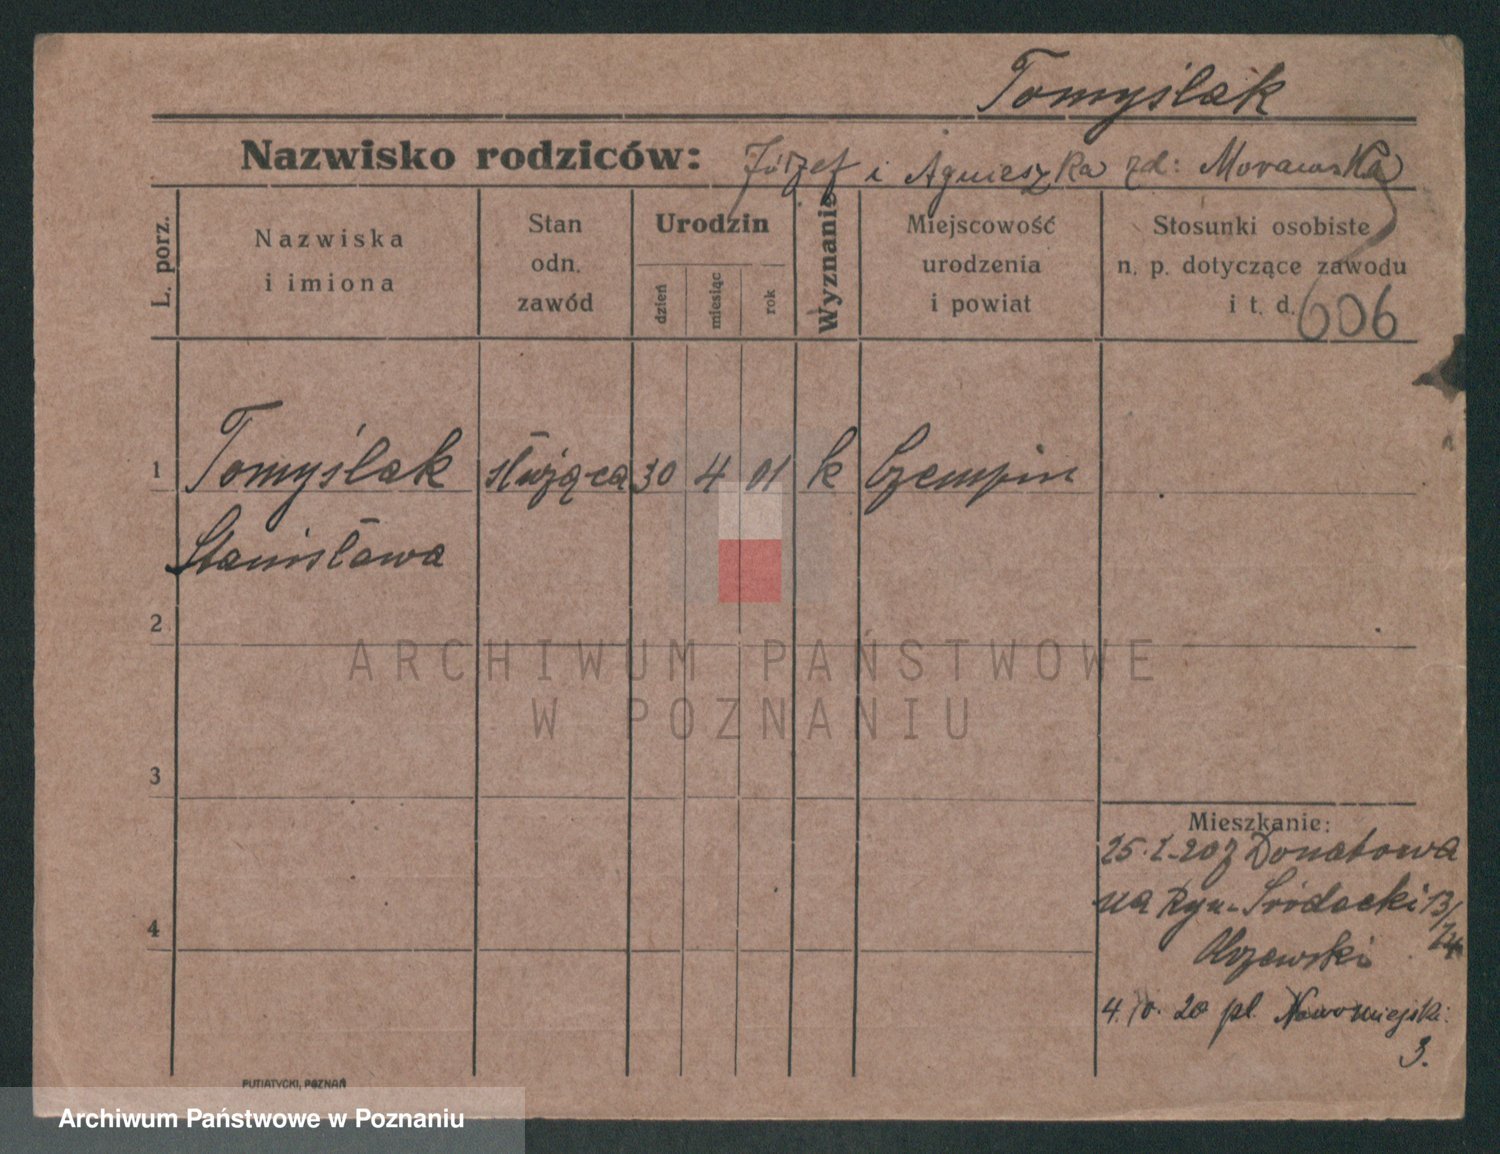 Tomyślak
Nazwisko rodziców: Józef i Agnieszka zd: Morawska
L. porz.
Nazwiska
i imiona
Stan
odn.
zawód
Urodzin
dzień
miesiąc
rok
Wyznanie
Miejscowość
urodzenia
i powiat
Stosunki osobiste
n. p. dotyczące zawodu
i t. d.
606
1 Tomyślak służąca 30 4 01 k Czempin
Stanisława
2
ARCHIWUM PAŃSTWOWE
W POZNANIU
3
Mieszkanie:
25. 2. 20 z Donatowa
na Ryn. Śródecki 13/
Olszewski
4
4. 10. 20 pl. Nowomiejski
3.
PUTIATYCKI, POZNAŃ
Archiwum Państwowe w Poznaniu